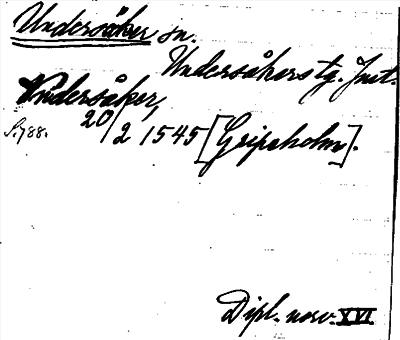 Undersåker sn.
Undersåkers tg. Jmt.
Undersåker,
S. 788. 20/2 1545 [Gripsholm].
Dipl. norv. XVI.